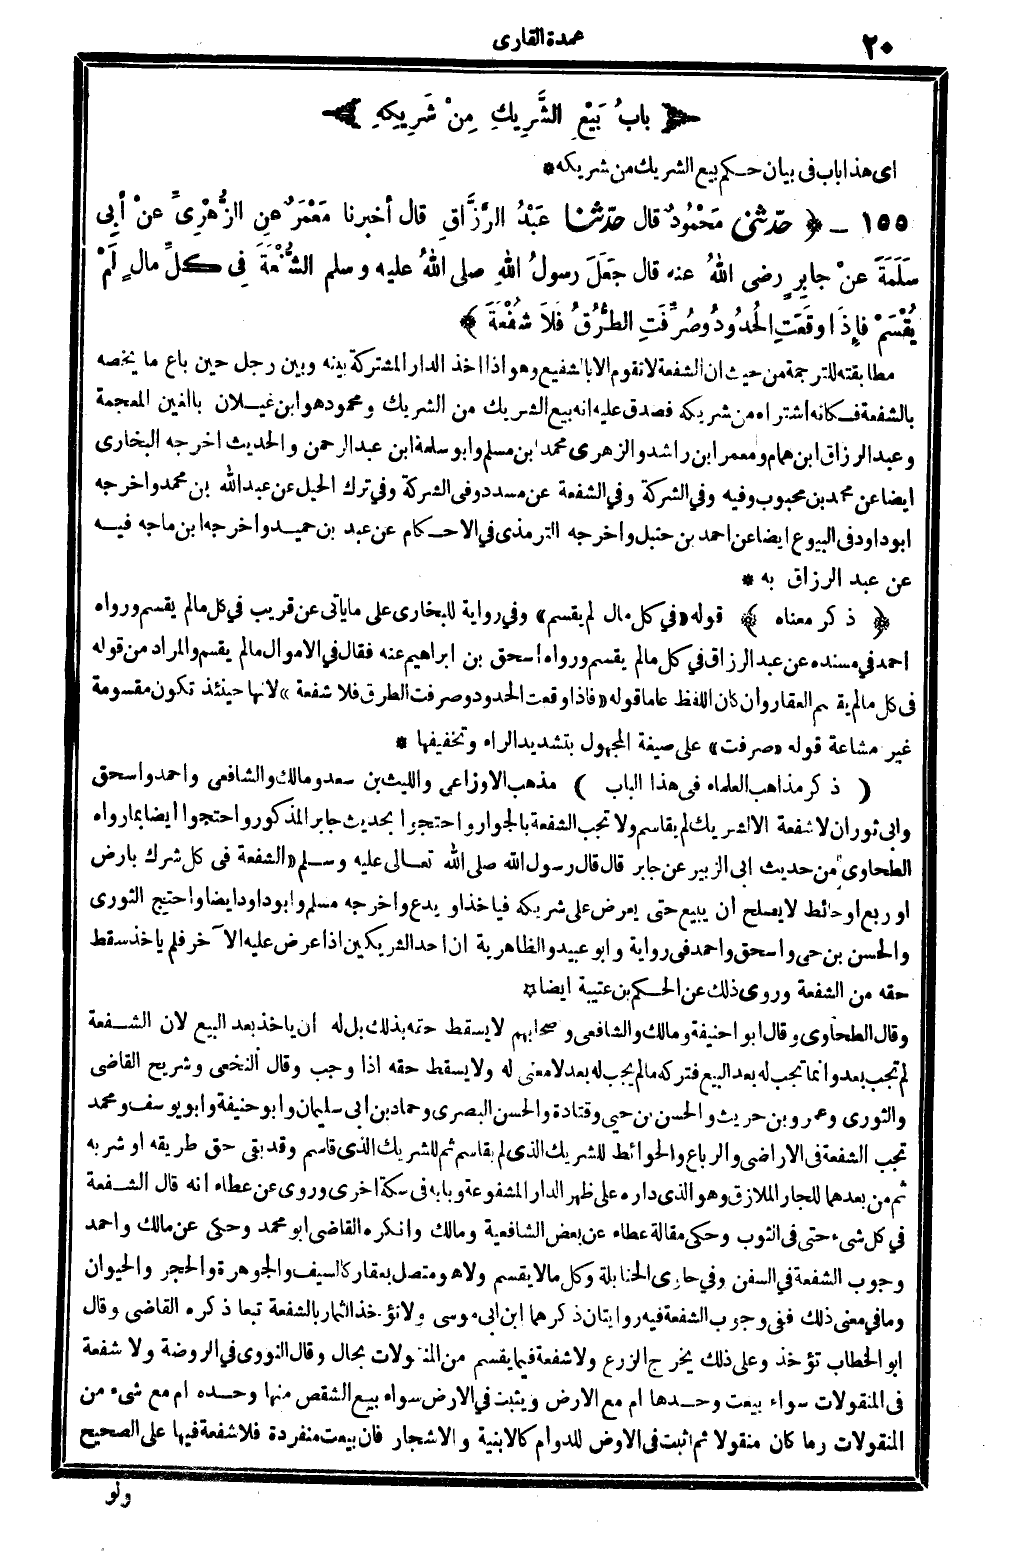 ٢٠
عمدة القارى
﴿ بابُ بَيْعِ الشَّرِيكِ مِنْ شَرِيكِهِ ﴾
اى هذا باب فى بيان حكم بيع الشريك من شريكه *
١٥٥ ـ ﴿ حدّثنى مَحْمُودٌ قال حدّثنا عَبْدُ الرَّزَّاقِ قال أخبرنا مَعْمَرٌ عنِ الزُّهْرِىِّ عنْ أبِى
سَلَمَةَ عنْ جابِرٍ رضى اللهُ عنه قال جَعَلَ رسولُ اللهِ صلى اللهُ عليه وسلم الشُّفْعَةَ فِى كلِّ مالٍ لَمْ
يُقْسَمْ فإِذَا وقَعَتِ الحُدُودُ وصُرِّفَتِ الطُّرُقُ فَلاَ شُفْعَةَ ﴾
مطابقته للترجمة من حيث ان الشفعة لا تقوم الا بالشفيع وهو اذا اخذ الدار المشتركة بينه وبين رجل حين باع ما يخصه
بالشفعة فكانه اشتراه من شريكه فصدق عليه انه بيع الشريك من الشريك ومحمود هو ابن غيلان بالغين المعجمة
وعبد الرزاق ابن همام ومعمر ابن راشد والزهرى محمد بن مسلم وابو سلمة ابن عبد الرحمن والحديث اخرجه البخارى
ايضا عن محمد بن محبوب وفيه وفي الشركة وفي الشفعة عن مسدد وفى الشركة وفي ترك الحيل عن عبد الله بن محمد واخرجه
ابو داود فى البيوع ايضا عن احمد بن حنبل واخرجه الترمذى في الاحكام عن عبد بن حميد واخرجه ابن ماجه فيه
عن عبد الرزاق به *
﴿ ذكر معناه ﴾ قوله «في كل مال لم يقسم» وفي رواية للبخارى على ما ياتى عن قريب في كل ما لم يقسم ورواه
احمد في مسنده عن عبد الرزاق في كل ما لم يقسم ورواه اسحق بن ابراهيم عنه فقال في الاموال ما لم يقسم والمراد من قوله
فى كل ما لم يقسم العقار وأن كان اللفظ عاما قوله «فاذا وقعت الحدود وصرفت الطرق فلا شفعة» لانها حينئذ تكون مقسومة
غير مشاعة قوله «صرفت» على صيغة المجهول بتشديد الراء وتخفيفها *
( ذكر مذاهب العلماء فى هذا الباب ) مذهب الاوزاعى والليث بن سعد ومالك والشافعى واحمد واسحق
وابى ثور ان لا شفعة الا لشريك لم يقاسم ولا تجب الشفعة بالجوار واحتجوا بحديث جابر المذكور واحتجوا أيضا بما رواه
الطحاوى من حديث ابى الزبير عن جابر قال قال رسول الله صلى الله تعالى عليه وسلم «الشفعة فى كل شرك بارض
او ربع او حائط لا يصلح أن يبيع حتى يعرض على شريكه فياخذ او يدع واخرجه مسلم وابو داود ايضا واحتج الثورى
والحسن بن حى واسحق واحمد فى رواية وابو عبيد والظاهرية ان احد الشريكين اذا عرض عليه الآخر فلم ياخذ سقط
حقه من الشفعة وروى ذلك عن الحكم بن عتيبة ايضا *
وقال الطحاوى وقال ابو احنيفة ومالك والشافعى وصحابهم لا يسقط حقه بذلك بل له أن ياخذ بعد البيع لان الشفعة
لم تجب بعد وانما تجب له بعد البيع فتركه ما لم يجب له بعد لا معنى له ولا يسقط حقه اذا وجب وقال النخعى وشريح القاضى
والثورى وعمرو بن حريث والحسن بن حيى وقتادة والحسن البصرى وحماد بن ابى سليمان وابو حنيفة وابو يوسف ومحمد
تجب الشفعة فى الاراضى والرباع والحوائط للشريك الذى لم يقاسم ثم للشريك الذى قاسم وقد بقى حق طريقه او شربه
ثم من بعدهما للجار الملازق وهو الذى داره على ظهر الدار المشفوعة وبابه فى سكة اخرى وروى عن عطاء انه قال الشفعة
في كل شىء حتى فى الثوب وحكى مقالة عطاء عن بعض الشافعية ومالك وانكره القاضى ابو محمد وحكى عن مالك واحمد
وجوب الشفعة في السفن وفي حاوى الحنابلة وكل ما لا يقسم ولا هو متصل بعقار كالسيف والجوهرة والحجر والحيوان
وما في معنى ذلك ففى وجوب الشفعة فيه روايتان ذكرهما ابن ابى موسى ولا تؤخذ الثمار بالشفعة تبعا ذكره القاضى وقال
ابو الخطاب تؤخذ وعلى ذلك يخرج الزرع ولا شفعة فيما يقسم من المنقولات بحال وقال النووى في الروضة ولا شفعة
فى المنقولات سواء بيعت وحدها ام مع الارض ويثبت في الارض سواء بيع الشقص منها وحده ام مع شىء من
المنقولات وما كان منقولا ثم اثبت فى الارض للدوام كالابنية والاشجار فان بيعت منفردة فلا شفعة فيها على الصحيح
ولو